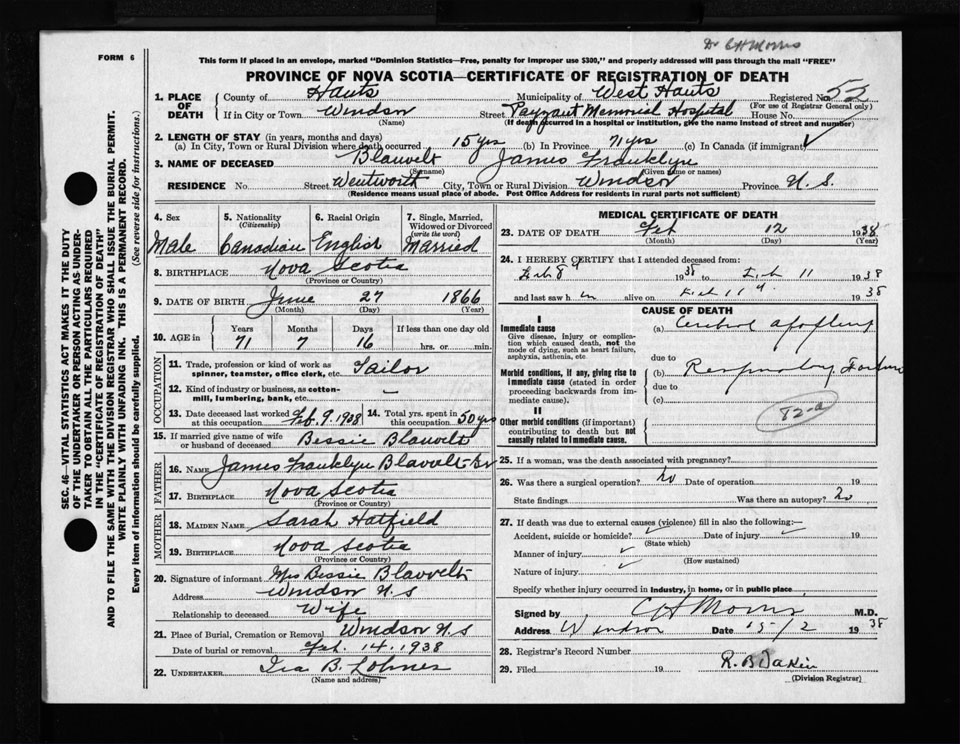 Dr C H Morris
FORM 6
This form if placed in an envelope, marked "Dominion Statistics—Free, penalty for improper use $300," and properly addressed will pass through the mail "FREE"
PROVINCE OF NOVA SCOTIA—CERTIFICATE OF REGISTRATION OF DEATH
1. PLACE OF DEATH
County of Hants Municipality of West Hants Registered No 52
(For use of Registrar General only)
If in City or Town Windsor Street Payzant Memorial Hospital House No.
(Name) (If death occurred in a hospital or institution, give the name instead of street and number)
2. LENGTH OF STAY (in years, months and days)
(a) In City, Town or Rural Division where death occurred 15 yrs (b) In Province 71 yrs (c) In Canada (if immigrant)
3. NAME OF DECEASED Blauvelt James Franklyn
(Surname) (Given name or names)
RESIDENCE No. Street Wentworth City, Town or Rural Division Windsor Province N. S.
(Residence means usual place of abode. Post Office Address for residents in rural parts not sufficient)
4. Sex Male
5. Nationality (Citizenship) Canadian
6. Racial Origin English
7. Single, Married, Widowed or Divorced (write the word) Married
8. BIRTHPLACE Nova Scotia
(Province or Country)
9. DATE OF BIRTH June 27 1866
(Month) (Day) (Year)
10. AGE in Years Months Days If less than one day old
71 7 16 hrs. or min.
OCCUPATION
11. Trade, profession or kind of work as spinner, teamster, office clerk, etc. Tailor
12. Kind of industry or business, as cotton-mill, lumbering, bank, etc. —
13. Date deceased last worked at this occupation Feb. 9. 1938
14. Total yrs. spent in this occupation 50 yrs
15. If married give name of wife or husband of deceased Bessie Blauvelt
FATHER
16. NAME James Franklyn Blauvelt Sr
17. BIRTHPLACE Nova Scotia
(Province or Country)
MOTHER
18. MAIDEN NAME Sarah Hatfield
19. BIRTHPLACE Nova Scotia
(Province or Country)
20. Signature of informant Mrs Bessie Blauvelt
Address Windsor N. S
Relationship to deceased Wife
21. Place of Burial, Cremation or Removal Windsor N. S
Date of burial or removal Feb. 14. 1938
22. UNDERTAKER Ira B. Lohnes
(Name and address)
MEDICAL CERTIFICATE OF DEATH
23. DATE OF DEATH Feb 12 1938
(Month) (Day) (Year)
24. I HEREBY CERTIFY that I attended deceased from:
Feb 8th 1938 to Feb 11 1938
and last saw h im alive on Feb 11th 1938
CAUSE OF DEATH
I
Immediate cause
Give disease, injury or complication which caused death, not the mode of dying, such as heart failure, asphyxia, asthenia, etc.
(a) Cerebral apoplexy
due to
Morbid conditions, if any, giving rise to immediate cause (stated in order proceeding backwards from immediate cause).
(b) Respiratory Failure
due to
(c)
82-a
II
Other morbid conditions (if important) contributing to death but not causally related to immediate cause.
25. If a woman, was the death associated with pregnancy?
26. Was there a surgical operation? No Date of operation 19
State findings Was there an autopsy? No
27. If death was due to external causes (violence) fill in also the following:—
Accident, suicide or homicide? Date of injury 19
(State which)
Manner of injury
(How sustained)
Nature of injury
Specify whether injury occurred in Industry, in home, or in public place
Signed by C H Morris M.D.
Address Windsor Date 15-/2 1938
28. Registrar's Record Number
29. Filed 19 R. B Dakin
(Division Registrar)
SEC. 46—VITAL STATISTICS ACT MAKES IT THE DUTY
OF THE UNDERTAKER OR PERSON ACTING AS UNDER-
TAKER TO OBTAIN ALL THE PARTICULARS REQUIRED
IN THE "CERTIFICATE OF REGISTRATION OF DEATH"
AND TO FILE THE SAME WITH THE DIVISION REGISTRAR WHO SHALL ISSUE THE BURIAL PERMIT.
WRITE PLAINLY WITH UNFADING INK. THIS IS A PERMANENT RECORD.
Every item of information should be carefully supplied. (See reverse side for instructions.)